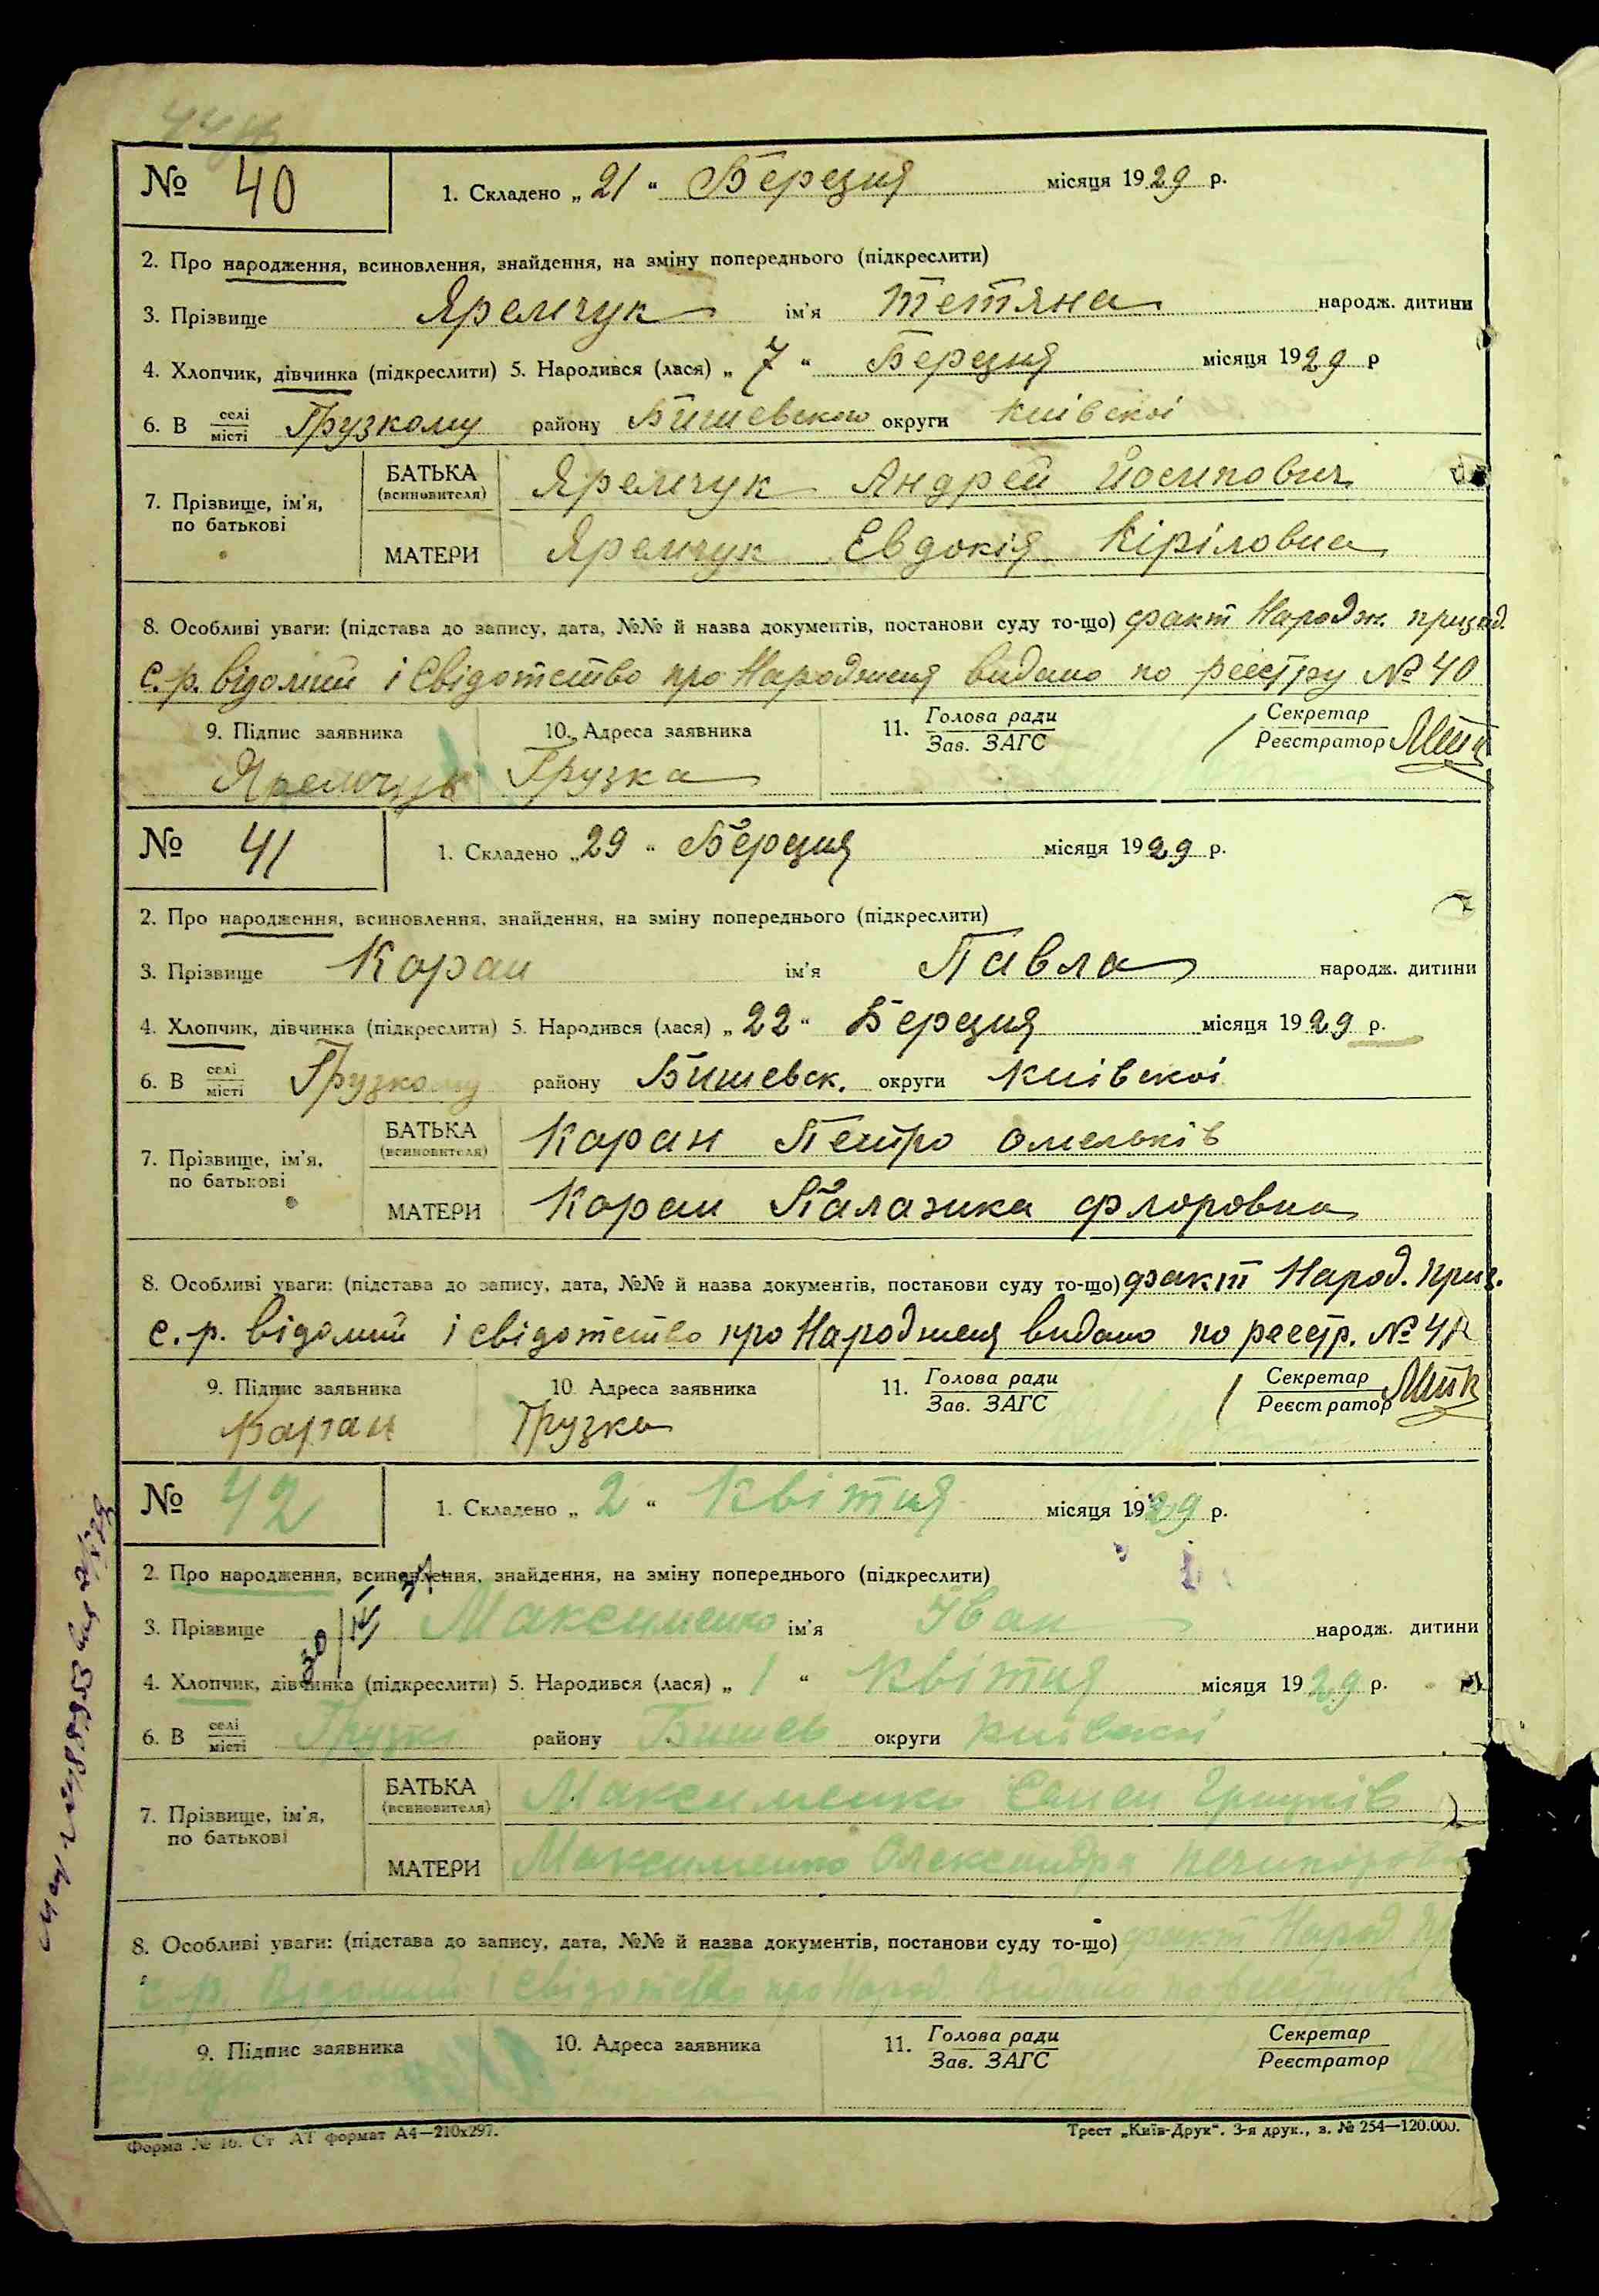 № 40 1. Складено „ 21 “ Березня місяця 1929 р.
2. Про народження, всиновлення, знайдення, на зміну попереднього (підкреслити)
3. Прізвище Яремчук ім'я Тетяна народж. дитини
4. Хлопчик, дівчинка (підкреслити) 5. Народився (лася) „ 7 “ Березня місяця 1929 р
6. В селі/місті Грузкому району Бишевского округи Київскої
7. Прізвище, ім'я, по батькові
БАТЬКА (всиновителя) Яремчук Андрей Йосипович
МАТЕРИ Яремчук Євдокія Кіріловна
8. Особливі уваги: (підстава до запису, дата, №№ й назва документів, постанови суду то-що) факт Народж.
с.р. відомий і свідотство про Народженя видано по реєстру № 40
9. Підпис заявника 10. Адреса заявника 11. Голова ради/Зав. ЗАГС Секретар/Реєстратор
Яремчук Грузка
№ 41 1. Складено „ 29 “ Березня місяця 1929 р.
2. Про народження, всиновлення, знайдення, на зміну попереднього (підкреслити)
3. Прізвище Коран ім'я Павла народж. дитини
4. Хлопчик, дівчинка (підкреслити) 5. Народився (лася) „ 22 “ Березня місяця 1929 р.
6. В селі/місті Грузкому району Бишевск. округи Київскої
7. Прізвище, ім'я, по батькові
БАТЬКА (всиновителя) Каран Петро Омельків
МАТЕРИ Коран Палазика Флоровна
8. Особливі уваги: (підстава до запису, дата, №№ й назва документів, постанови суду то-що) факт Народ.
с.р. відомий і свідотство про Народженя видано по реєстр. № 41
9. Підпис заявника 10. Адреса заявника 11. Голова ради/Зав. ЗАГС Секретар/Реєстратор
Каран Грузка
№ 42 1. Складено „ 2 “ Квітня місяця 1929 р.
2. Про народження, всиновлення, знайдення, на зміну попереднього (підкреслити)
3. Прізвище Максименко ім'я Іван народж. дитини
4. Хлопчик, дівчинка (підкреслити) 5. Народився (лася) „ 1 “ Квітня місяця 1929 р.
6. В селі/місті району Бишев округи Київскої
7. Прізвище, ім'я, по батькові
БАТЬКА (всиновителя) Максименко Семен
МАТЕРИ Максименко Олександра
8. Особливі уваги: (підстава до запису, дата, №№ й назва документів, постанови суду то-що) факт Народ.
с.р. Відомий і свідотство про Народ. видано по реєстру №
9. Підпис заявника 10. Адреса заявника 11. Голова ради/Зав. ЗАГС Секретар/Реєстратор
Форма № 16. Ст АТ формат А4—210x297. Трест „Київ-Друк“. 3-я друк., з. № 254—120.000.